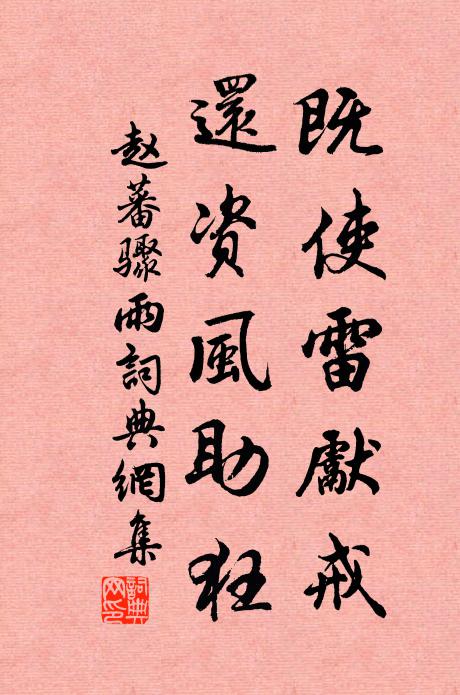 既使雷獻戒
還資風助狂
赵蕃骤雨詞典網集
詞典网印